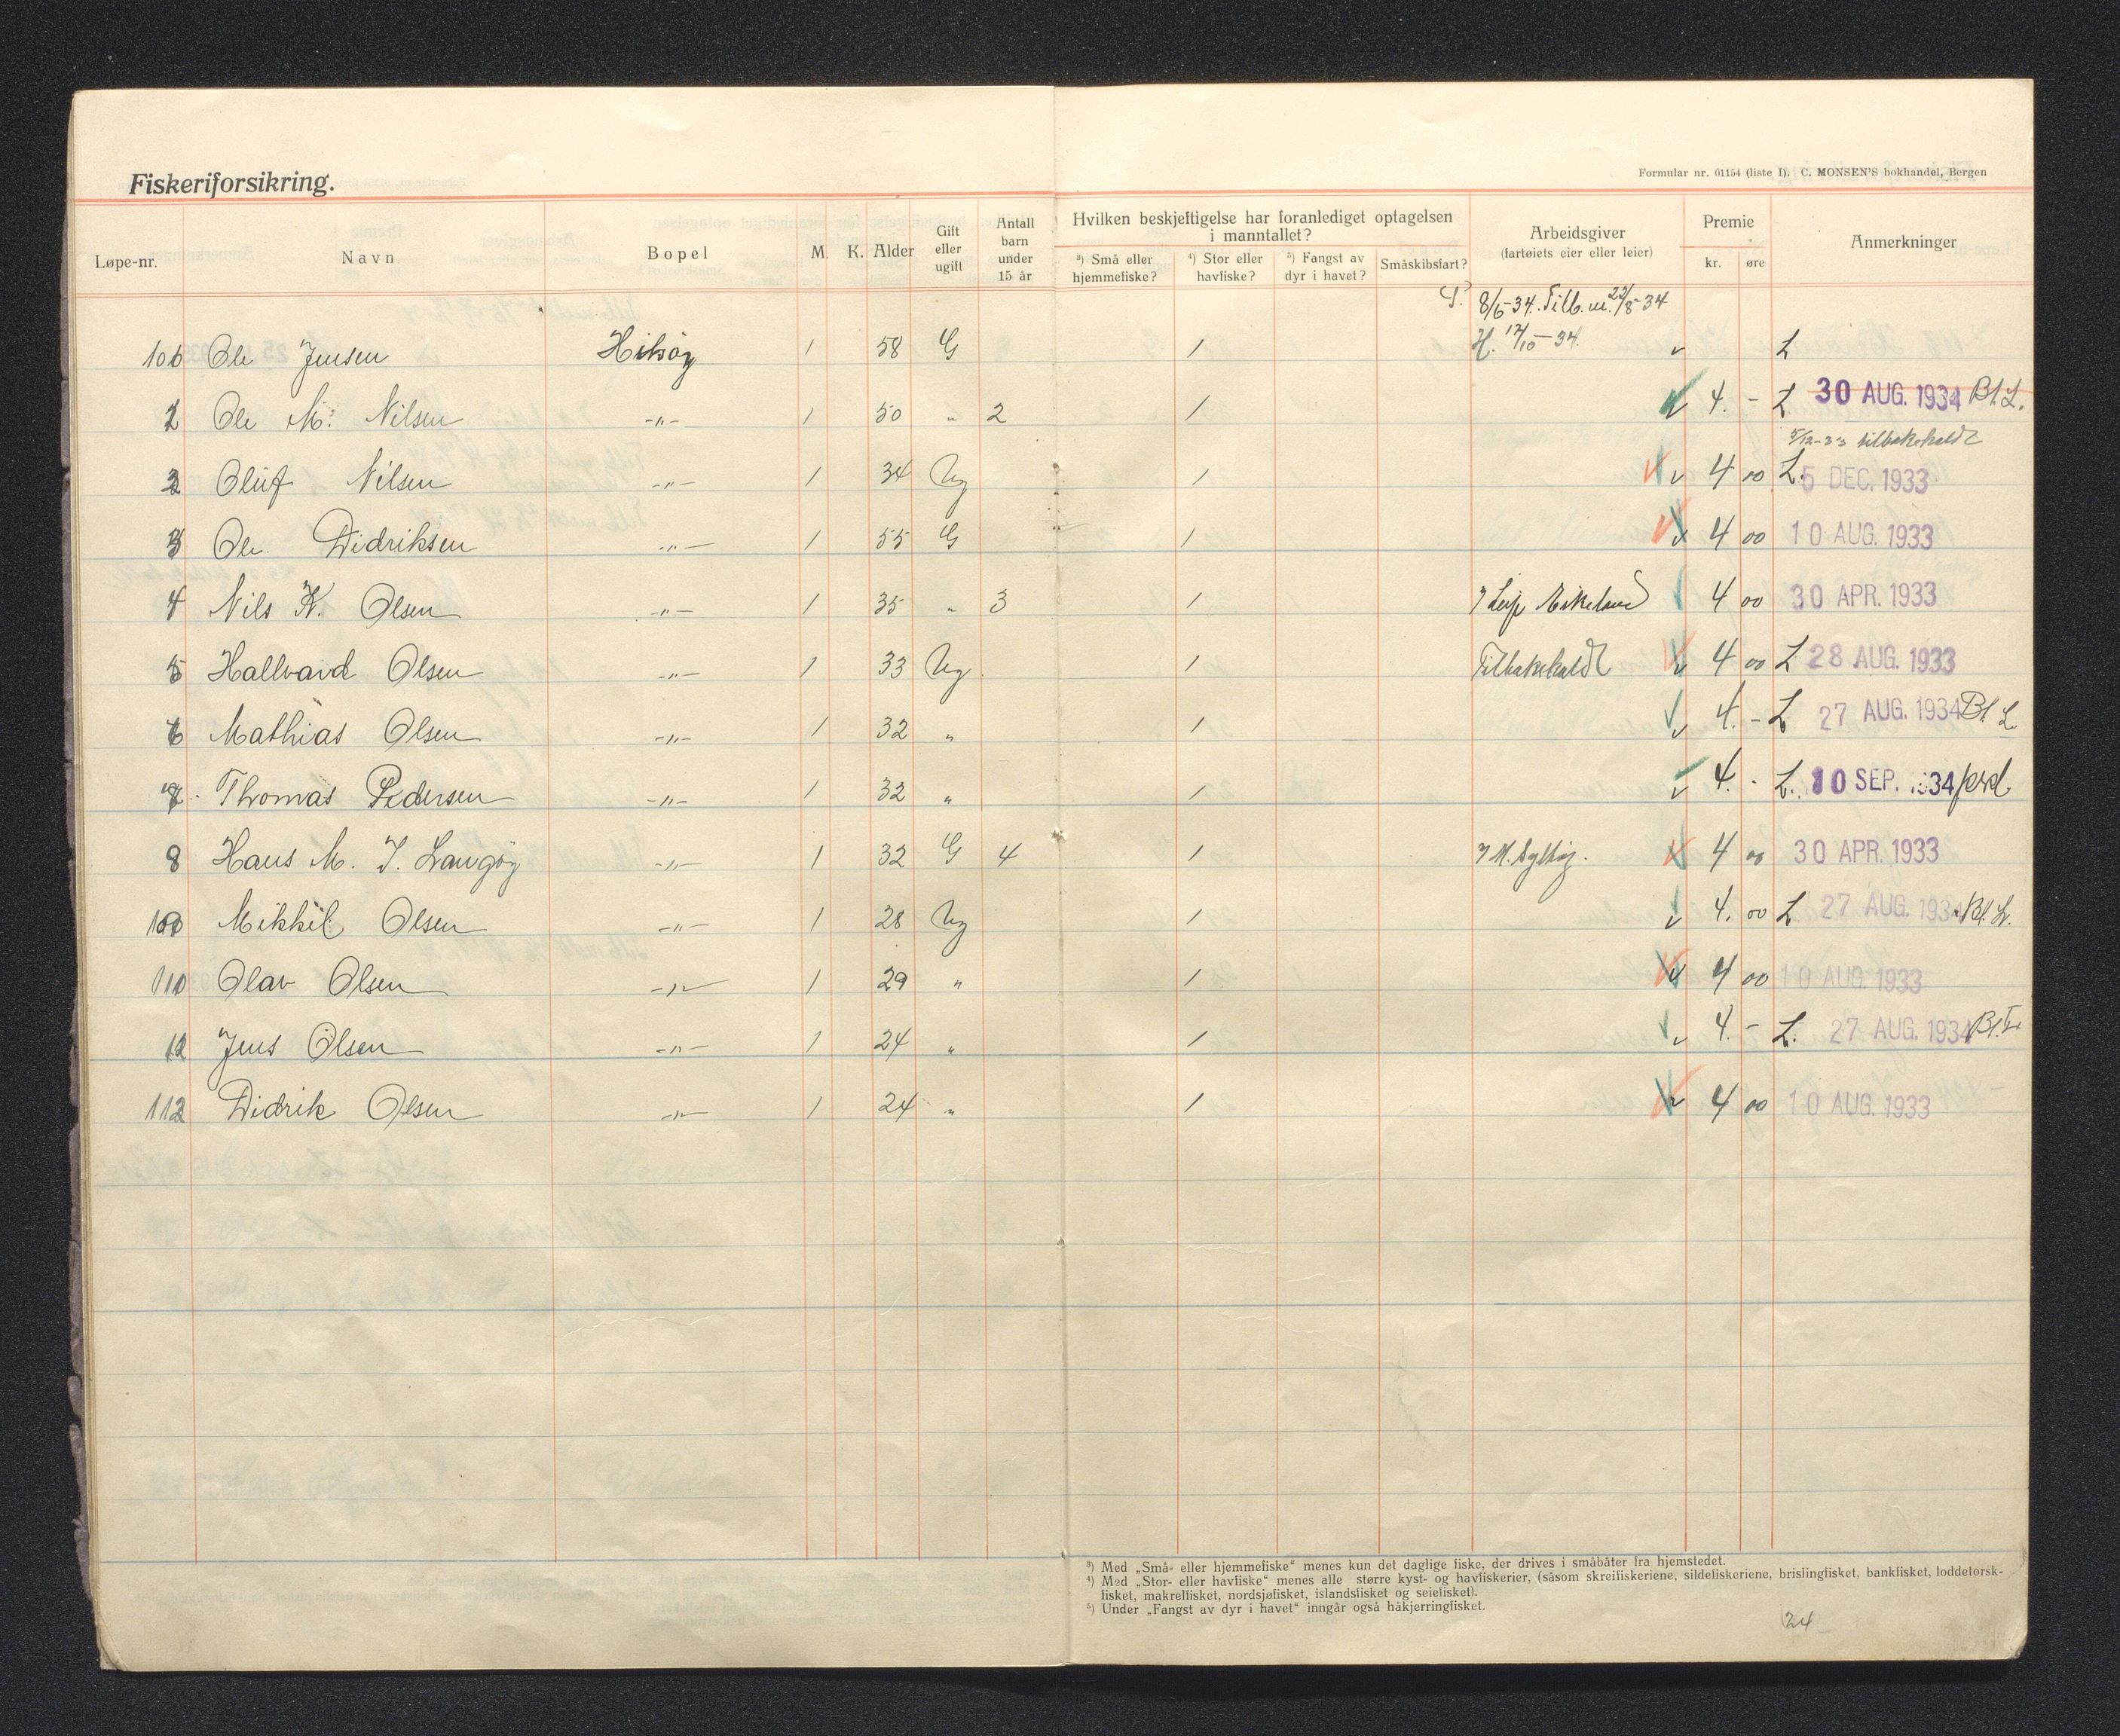 Fiskeriforsikring.
Formular nr. 01154 (liste I). C. MONSEN'S bokhandel, Bergen
Løpe-nr. Navn Bopel M. K. Alder Gift eller ugift Antall barn under 15 år Hvilken beskjeftigelse har foranlediget optagelsen i manntallet? ³) Små eller hjemmefiske? ⁴) Stor eller havfiske? ⁵) Fangst av dyr i havet? Småskibsfart? Arbeidsgiver (fartøiets eier eller leier) Premie kr. øre Anmerkninger
8/6-34. Tilb. m. 22/8-34
Ole Jensen 1 58 G 1 H. 17/10-34. L
2 Ole M. Nilsen -"- 1 50 " 2 1 4. - L 30 AUG. 1934 Bl. L.
5/12-33 tilbakekaldt
Oluf Nilsen -"- 1 34 Ug 1 4 00 L. 5 DEC. 1933
Ole Didriksen -"- 1 55 G 1 4 00 10 AUG. 1933
4 Nils K. Olsen -"- 1 35 " 3 1 4 00 30 APR. 1933
5 Hallvard Olsen -"- 1 33 Ug. 1 Tilbakekaldt 4 00 L 28 AUG. 1933
6 Mathias Olsen -"- 1 32 " 1 4. - L 27 AUG. 1934 Bl. L
7 Thomas Pedersen -"- 1 32 " 1 4. - L. 10 SEP. 1934
8 Hans M. J. Langöy -"- 1 32 G 4 1 4 00 30 APR. 1933
Mikkil Olsen -"- 1 28 Ug 1 4. 00 L 27 AUG. 1934 Bl. L.
Olav Olsen -"- 1 29 " 1 4 00 10 AUG. 1933
Jens Olsen -"- 1 24 " 1 4. - L. 27 AUG. 1934 Bl. L
112 Didrik Olsen -"- 1 24 " 1 4 00 10 AUG. 1933
³) Med „Små- eller hjemmefiske“ menes kun det daglige fiske, der drives i småbåter fra hjemstedet.
⁴) Med „Stor- eller havfiske“ menes alle større kyst- og havfiskerier, (såsom skreifiskeriene, sildefiskeriene, brislingfisket, bankfisket, loddetorsk-
fisket, makrellfisket, nordsjøfisket, islandsfisket og seiefisket).
⁵) Under „Fangst av dyr i havet“ inngår også håkjerringfisket.
24